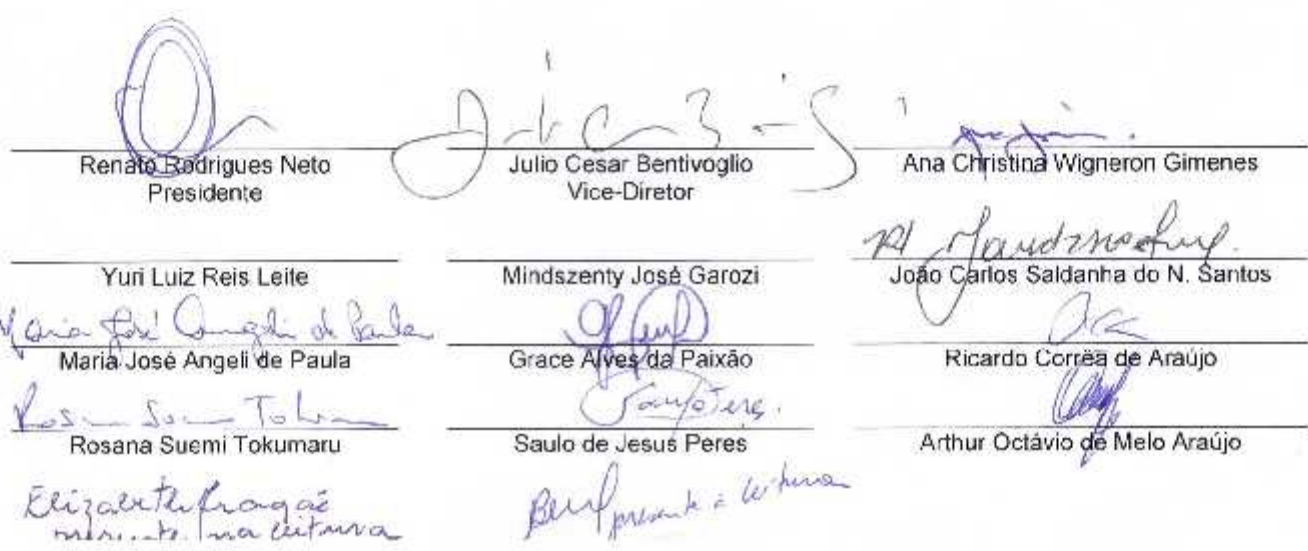 Renato Rodrigues Neto
Presidente
Julio Cesar Bentivoglio
Vice-Diretor
Ana Christina Wigneron Gimenes
Yuri Luiz Reis Leite
Mindszenty José Garozi
João Carlos Saldanha do N. Santos
Maria José Angeli de Paula
Maria José Angeli de Paula
Grace Alves da Paixão
Ricardo Corrêa de Araújo
Rosana Suemi Tokumaru
Saulo de Jesus Peres
Arthur Octávio de Melo Araújo
Elizabeth
presente na leitura
presente à leitura